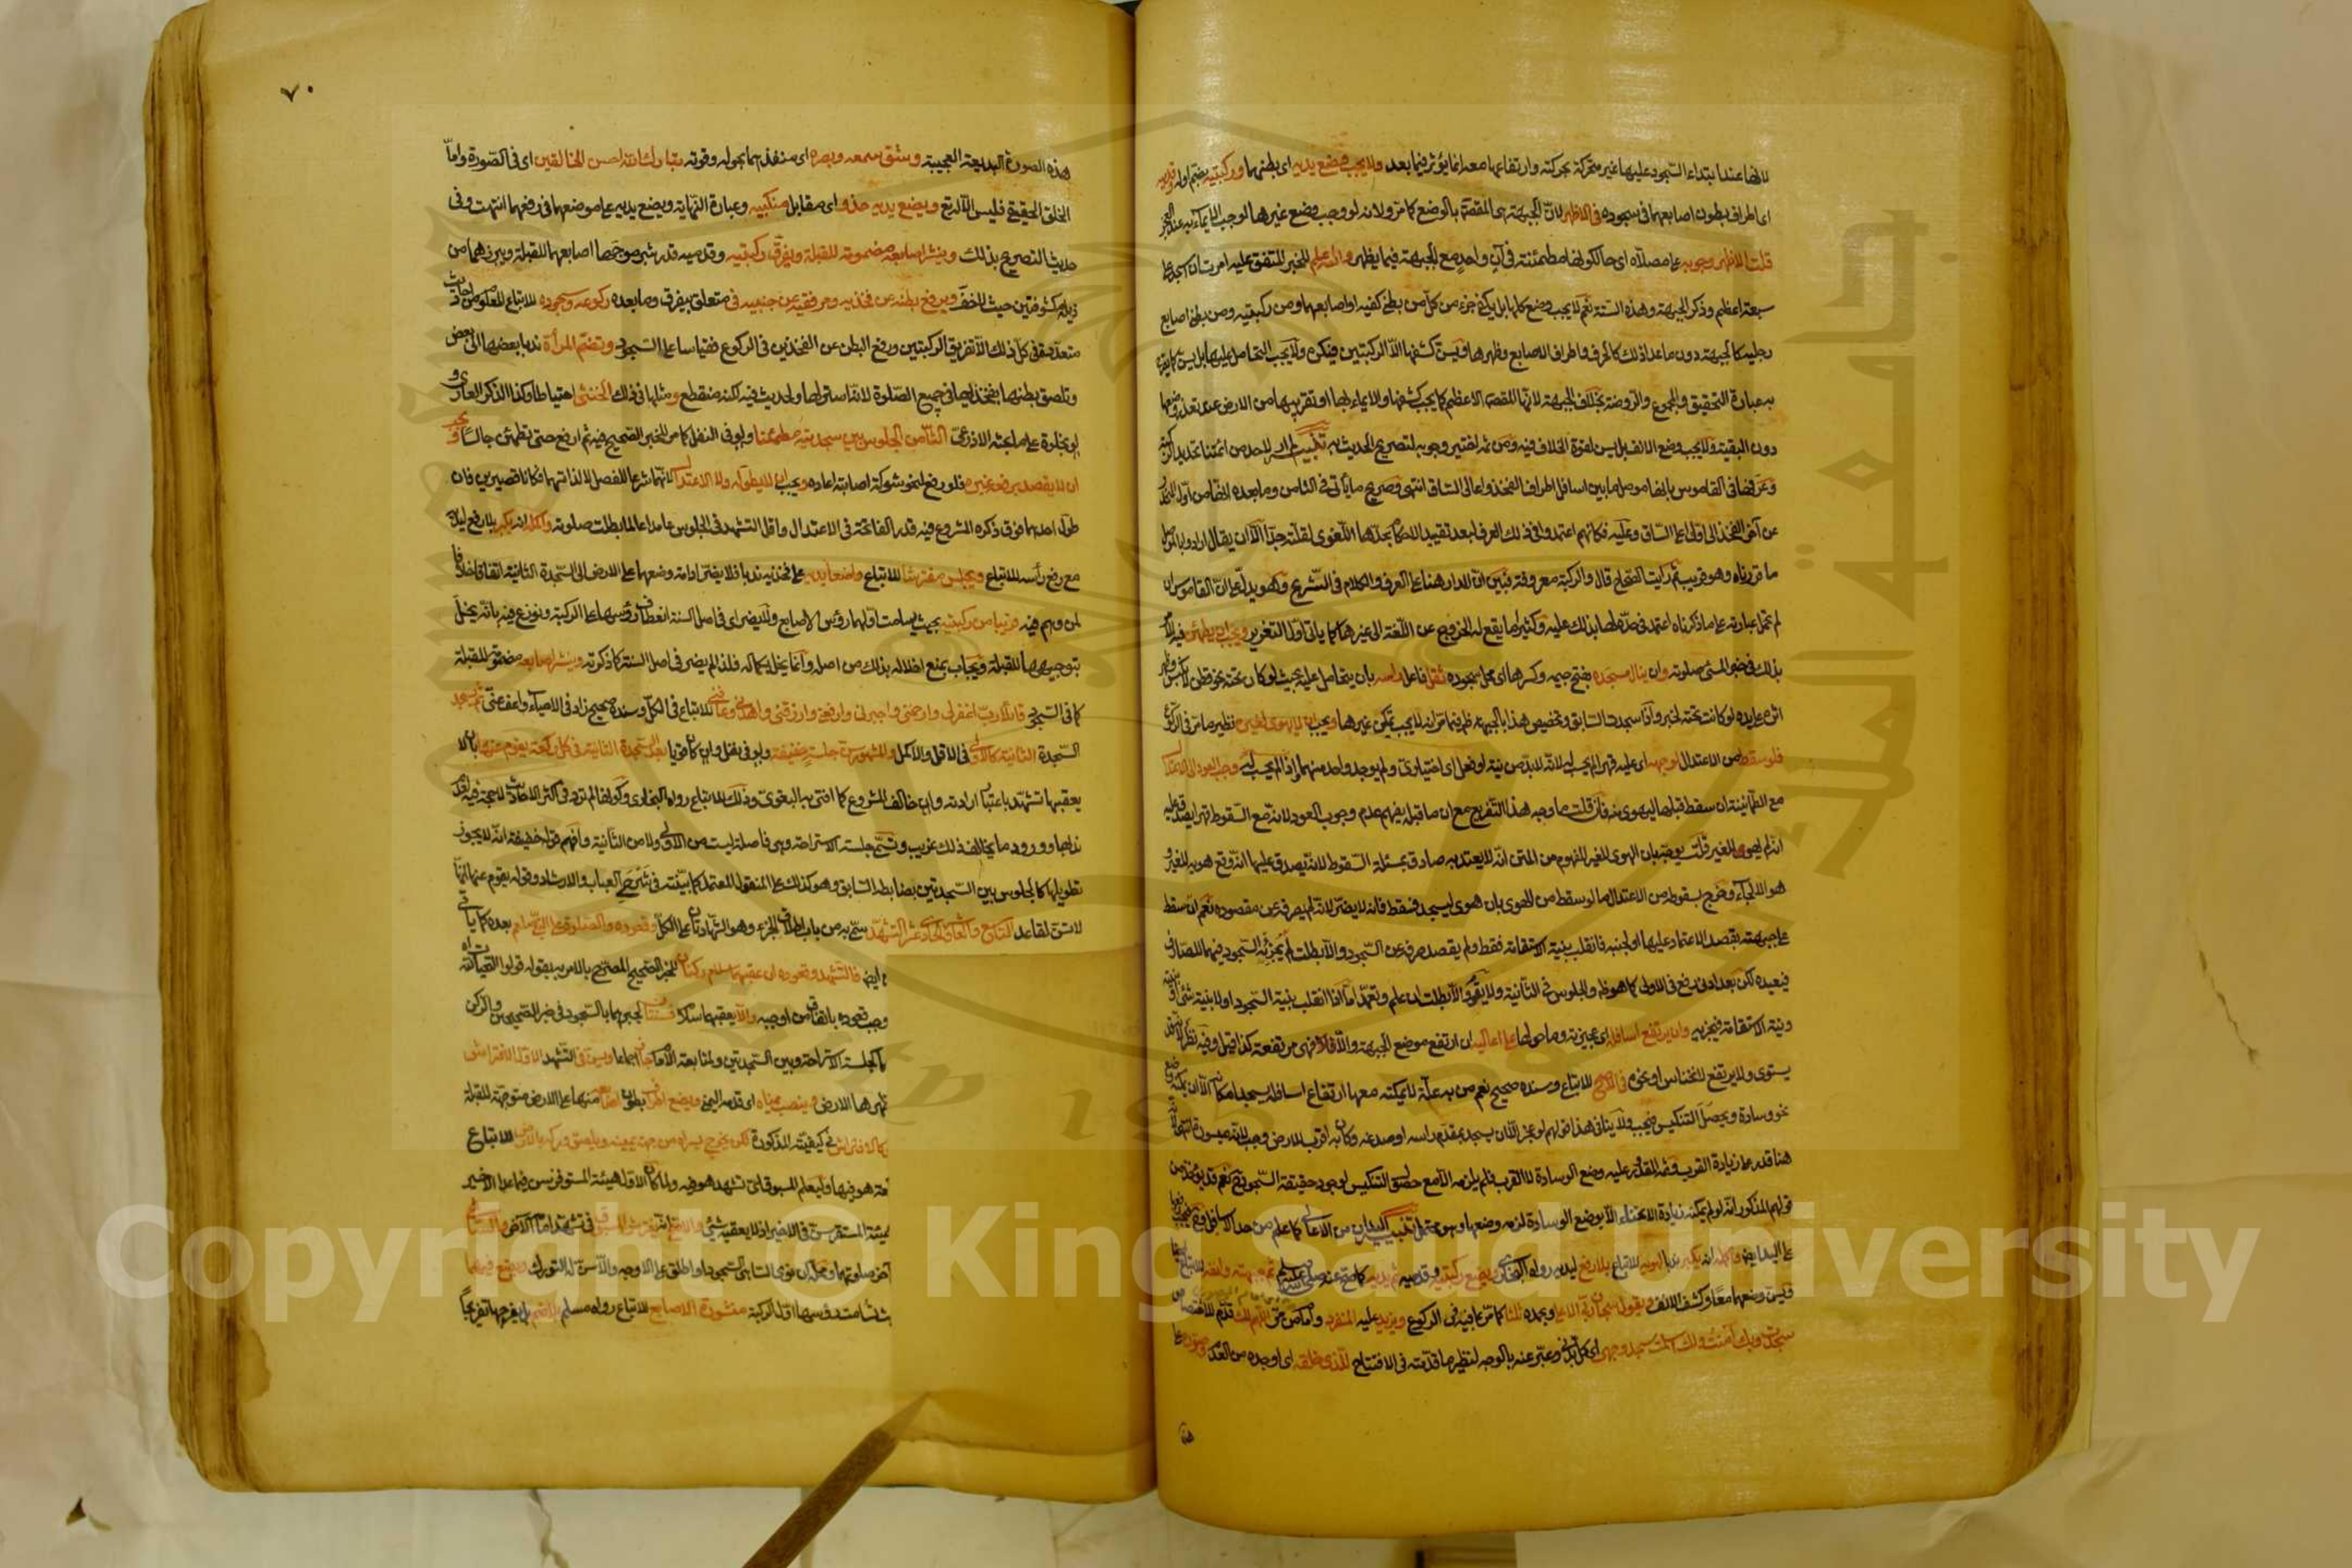 لانها عند ابتداء السجود عليها غير متحركة بحركته وارتفاعها معه انما يؤثر فيما بعد ولا يجب وضع يديه اى بطنهما وركبتيه بضم اوله وقدميه
اى اطراف بطون اصابعهما فى سجوده فى الاظهر لان الجبهة هى المقصودة بالوضع كما مر ولانه لو وجب وضع غيرها لوجب الايماء به عند العجز
قلت الاظهر وجوبه على مصلاه اى حال كونها مطمئنة فى آن واحد مع الجبهة فيما يظهر والله اعلم للخبر المتفق عليه امرت ان اسجد على
سبعة اعظم وذكر الجبهة وهذه الستة نعم لا يجب وضع كلها بل يكفى جزء من كل من بطن كفيه او اصابعهما ومن ركبتيه ومن بطن اصابع
رجليه كالجبهة دون ما عدا ذلك كالحرف واطراف الاصابع وظهرها ويسن كشفها الا الركبتين فيكره ولا يجب التحامل عليها بل يسن
عبارة التحقيق والمجموع والروضة بخلاف الجبهة لانها المقصد الاعظم كما يجب كشفها والايماء بها او تقريبها من الارض عند تعذر وضعها
دون البقية ولا يجب وضع الانف بل يسن لقوة الخلاف فيه ومن ثم اختير وجوبه لتصريح الحديث به تنبيه لم ار لاحد من ائمتنا تحديد الركبة
وعرفها فى القاموس بانها موصل ما بين اسافل اطراف الفخذ واعالى الساق انتهى وصريح ما يأتى فى الثامن وما بعده انها من اول
عن آخر الفخذ الى اول اعلى الساق وعليه فكانهم اعتمدوا فى ذلك العرف لبعد تقييد الاحكام بحدها اللغوى لقلته جدا الا ان يقال ارادوا بالموصل
ما قررناه وهو قريب ثم رأيت الصحاح قال والركبة معروفة فبين ان المدار هنا على العرف والكلام فى الشرع وهو يدل على ان القاموس ان
لم تحمل عبارته على ما ذكرناه اعتمد فى حده لها بذلك عليه وكثيرا ما يقع له الخروج عن اللغة الى غيرها كما ياتى اول التعزير ويجب ان يطمئن فيه للامر
بذلك فى خبر المسئ صلوته وان ينال مسجده بفتح جيمه وكسرها اى محل سجوده ثقل فاعل رأسه بان يتحامل عليه بحيث لو كان تحته نحو قطن لانكبس وظهر
اثره على يده لو كانت تحته لخبر واذا سجدت السابق وتخصيص هذا بالجبهة ظاهر فيما مر انه لا يجب تمكين غيرها ويجب ان لا يهوى لغيره نظير ما مر فى الركوع
فلو سقط من الاعتدال لوجهه اى عليه قهرا لم يحسب له لانه لا بد من نية او فعل اى اختيارى ولم يوجد واحد منهما واذا لم يحسب له وجب العود الى الاعتدال
مع الطمأنينة ان سقط قبلها ليهوى منه فان قلت ما وجه هذا التفريع مع ان ما قبله يفهم عدم وجوب العود لانه مع السقوط قهرا يصدق عليه
انه لم يهوى لغير قلت يوجه بان الهوى للغير المفهوم من المتن انه لا يعتد به صادق بمسئلة السقوط لانه يصدق عليها انه وقع هويه للغير و
هو الالجاء وخرج بسقوط من الاعتدال ما لو سقط من الهوى بان هوى ليسجد فسقط فانه لا يضر لانه لم يصرفه عن مقصوده نعم ان سقط
على جبهته بقصد الاعتماد عليها او لجنبه فانقلب بنية الاستقامة فقط ولم يقصد صرفه عن السجود والا بطلت لم يجزئه السجود فيهما للصارف
فيعيده لكن بعد ادنى رفع فى الاولى كما هو ظاهر والجلوس فى الثانية ولا يقوم والا بطلت ان علم وتعمد اما اذا انقلب بنية السجود او لا بنية شئ او بنيته
ونية الاستقامة فيجزيه وان يرتفع اسافله اى عجيزته وما حولها على اعاليه ان ارتفع موضع الجبهة والا فالاولى مرتفعة كذا قيل وفيه نظر
يستوى ولا يرتفع لانخناس او نحوه فى الاصح للاتباع وسنده صحيح نعم من به علة لا يمكنه معها ارتفاع اسافله يسجد امكانه الا ان يمكنه وضع
نحو وسادة ويحصل التنكيس فيجب ولا ينافى هذا قولهم لو عجز الا ان يسجد بمقدم راسه او صدغه وكان به اقرب للارض وجب للتقصير
هنا قدر على زيادة القرب وثم المقدور عليه وضع الوسادة لا القرب فلم يلزمه الا مع حصول التنكيس لوجود حقيقة السجود نعم قد يؤخذ من
قولهم المذكور انه لو لم يمكنه زيادة الانحناء الا بوضع الوسادة لزمه وضعها وهو محتمل تنبيه اليدان من الاعالى كما علم من حد الاسافل وحينئذ فيجب رفعها
على اليدين ايضا واكمله انه يكبر ندبا لهويه للاتباع بلا رفع ليديه رواه البخارى ويضع ركبتيه وقدميه ثم يديه كما صح عنه صلى الله عليه وسلم ثم جبهته وانفه للاتباع ايضا
فليس وضعهما معا وكشف الانف ويقول سبحان ربى الاعلى وبحمده ثلاثا كما مر بما فيه فى الركوع ويزيد عليه المنفرد وامام من مر اللهم لك قدم للاختصاص
سجدت وبك آمنت ولك اسلمت سجد وجهى اى كل بدنى وعبر عنه بالوجه لنظير ما قدمته فى الافتتاح للذى خلقه اى اوجده من العدم وصوره على
هذه
٧٠
هذه الصورة البديعة العجيبة وشق سمعه وبصره اى منفذهما بحوله وقوته تبارك الله احسن الخالقين اى فى الصورة واما
الخلق الحقيقى فليس الا له تع ويضع يديه حذو اى مقابل منكبيه وعبارة النهاية ويضع يديه على موضعهما فى رفعهما انتهت وفى
حديث التصريح بذلك وينشر اصابعه مضمومة للقبلة ويفرق ركبتيه وقدميه قدر شبر موجها اصابعهما للقبلة ويبرزهما من
ذيله مكشوفتين حيث لا خف ويرفع بطنه عن فخذيه ومرفقيه عن جنبيه فى متعلق بيفرق وما بعده ركوعه وسجوده للاتباع المعلوم من احاديث
متعددة فى كل ذلك الا تفريق الركبتين ورفع البطن عن الفخذين فى الركوع فقياسا على السجود وتضم المرأة ندبا بعضها الى بعض
وتلصق بطنها بفخذيها فى جميع الصلوة لانه استر لها ولحديث فيه لكنه منقطع ومثلها فى ذلك الخنثى احتياطا وكذا الذكر العارى و
لو بخلوة على ما بحثه الاذرعى الثامن الجلوس بين سجدتيه مطمئنا ولو فى النفل كما مر للخبر الصحيح فيه ثم ارفع حتى تطمئن جالسا ويجب
ان لا يقصد برفعه غيره فلو رفع لنحو شوكة اصابته اعاده ويجب ان لا يطوله ولا الاعتدال لانهما شرعا للفصل لا لذاتهما فكانا قصيرين فان
طول احدهما فوق ذكره المشروع فيه قدر الفاتحة فى الاعتدال واقل التشهد فى الجلوس عامدا عالما بطلت صلوته واكمله انه يكبر بلا رفع ليديه
مع رفع رأسه للاتباع ويجلس مفترشا للاتباع واضعا يديه على فخذيه ندبا فلا يضر ادامة وضعهما على الارض الى السجدة الثانية اتفاقا خلافا
لمن وهم فيه قريبا من ركبتيه بحيث يسامت اولهما رؤس الاصابع ولا يضر اى فى اصل السنة انعطاف رؤسهما على الركبة ونوزع فيه بانه يخل
بتوجيهها للقبلة ويجاب بمنع اخلاله بذلك من اصله وانما يخل بكماله فلذا لم يضر فى اصل السنة كما ذكرته وينشر اصابعه مضمومة للقبلة
كما فى السجود قائلا رب اغفر لى وارحمنى واجبرنى وارفعنى وارزقنى واهدنى وعافنى للاتباع فى الكل وسنده صحيح زاد فى الاحياء واعف عنى ثم يسجد
السجدة الثانية كالاولى فى الاقل والاكمل والمشهور سن جلسة خفيفة ولو فى نفل وان كان قويا بعد السجدة الثانية فى كل ركعة يقوم عنها بان لا
يعقبها تشهد باعتبار ارادته وان خالف المشروع كما افتى به البغوى وذلك للاتباع رواه البخارى وكونها لم ترد فى اكثر الاحاديث لا حجة فيه لعدم
ندبها وورود ما يخالف ذلك غريب وتسمى جلسة الاستراحة وهى فاصلة ليست من الاولى ولا من الثانية وافهم قوله خفيفة انه لا يجوز
تطويلها كالجلوس بين السجدتين بضابطه السابق وهو كذلك على المنقول المعتمد كما بينته فى شرحى العباب والارشاد وقوله يقوم عنها انها
لا تسن لقاعد التاسع والعاشر والحادى عشر التشهد سمى به من باب اطلاق الجزء وهو الشهادتان على الكل وقعوده والصلوة على النبى صلعم بعده كما ياتى
فالتشهد وقعوده ان عقبهما سلام ركنان للخبر الصحيح المصرح بالامر به بقوله قولوا التحيات لله
وجب قعوده باتفاق من اوجبه والا يعقبهما سلام فسنتان لجبرهما بالسجود فى خبر الصحيحين والركن
كجلسة الاستراحة وبين السجدتين ولمتابعة الامام جائز اجماعا ويسن فى التشهد الاول الافتراش
ظهرها الارض وينصب يمناه اى قدمه اليمنى ويضع اطراف بطون اصابعه منها على الارض متوجهة للقبلة
كالافتراش فى كيفيته المذكورة لكن يخرج يسراه من جهة يمينه ويلصق وركه بالارض للاتباع
هو فيها وليعلم المسبوق اى تشهد هو فيه ولما كان الاول هيئة المستوفز سن فيما عدا الاخير
هيئة المستقر سن فى الاخير اذ لا يعقبه شئ والاصح انه يفترش المسبوق فى تشهد امامه الاخر والساهى
آخر صلوتهما ومحله ان نوى الساهى السجود او اطلق على الاوجه والا سن له التورك ويضع فيهما
مسامتة رؤسها اول الركبة منشورة الاصابع للاتباع رواه مسلم بلا ضم بل يفرجها تفريجا
Copyright © King Saud University